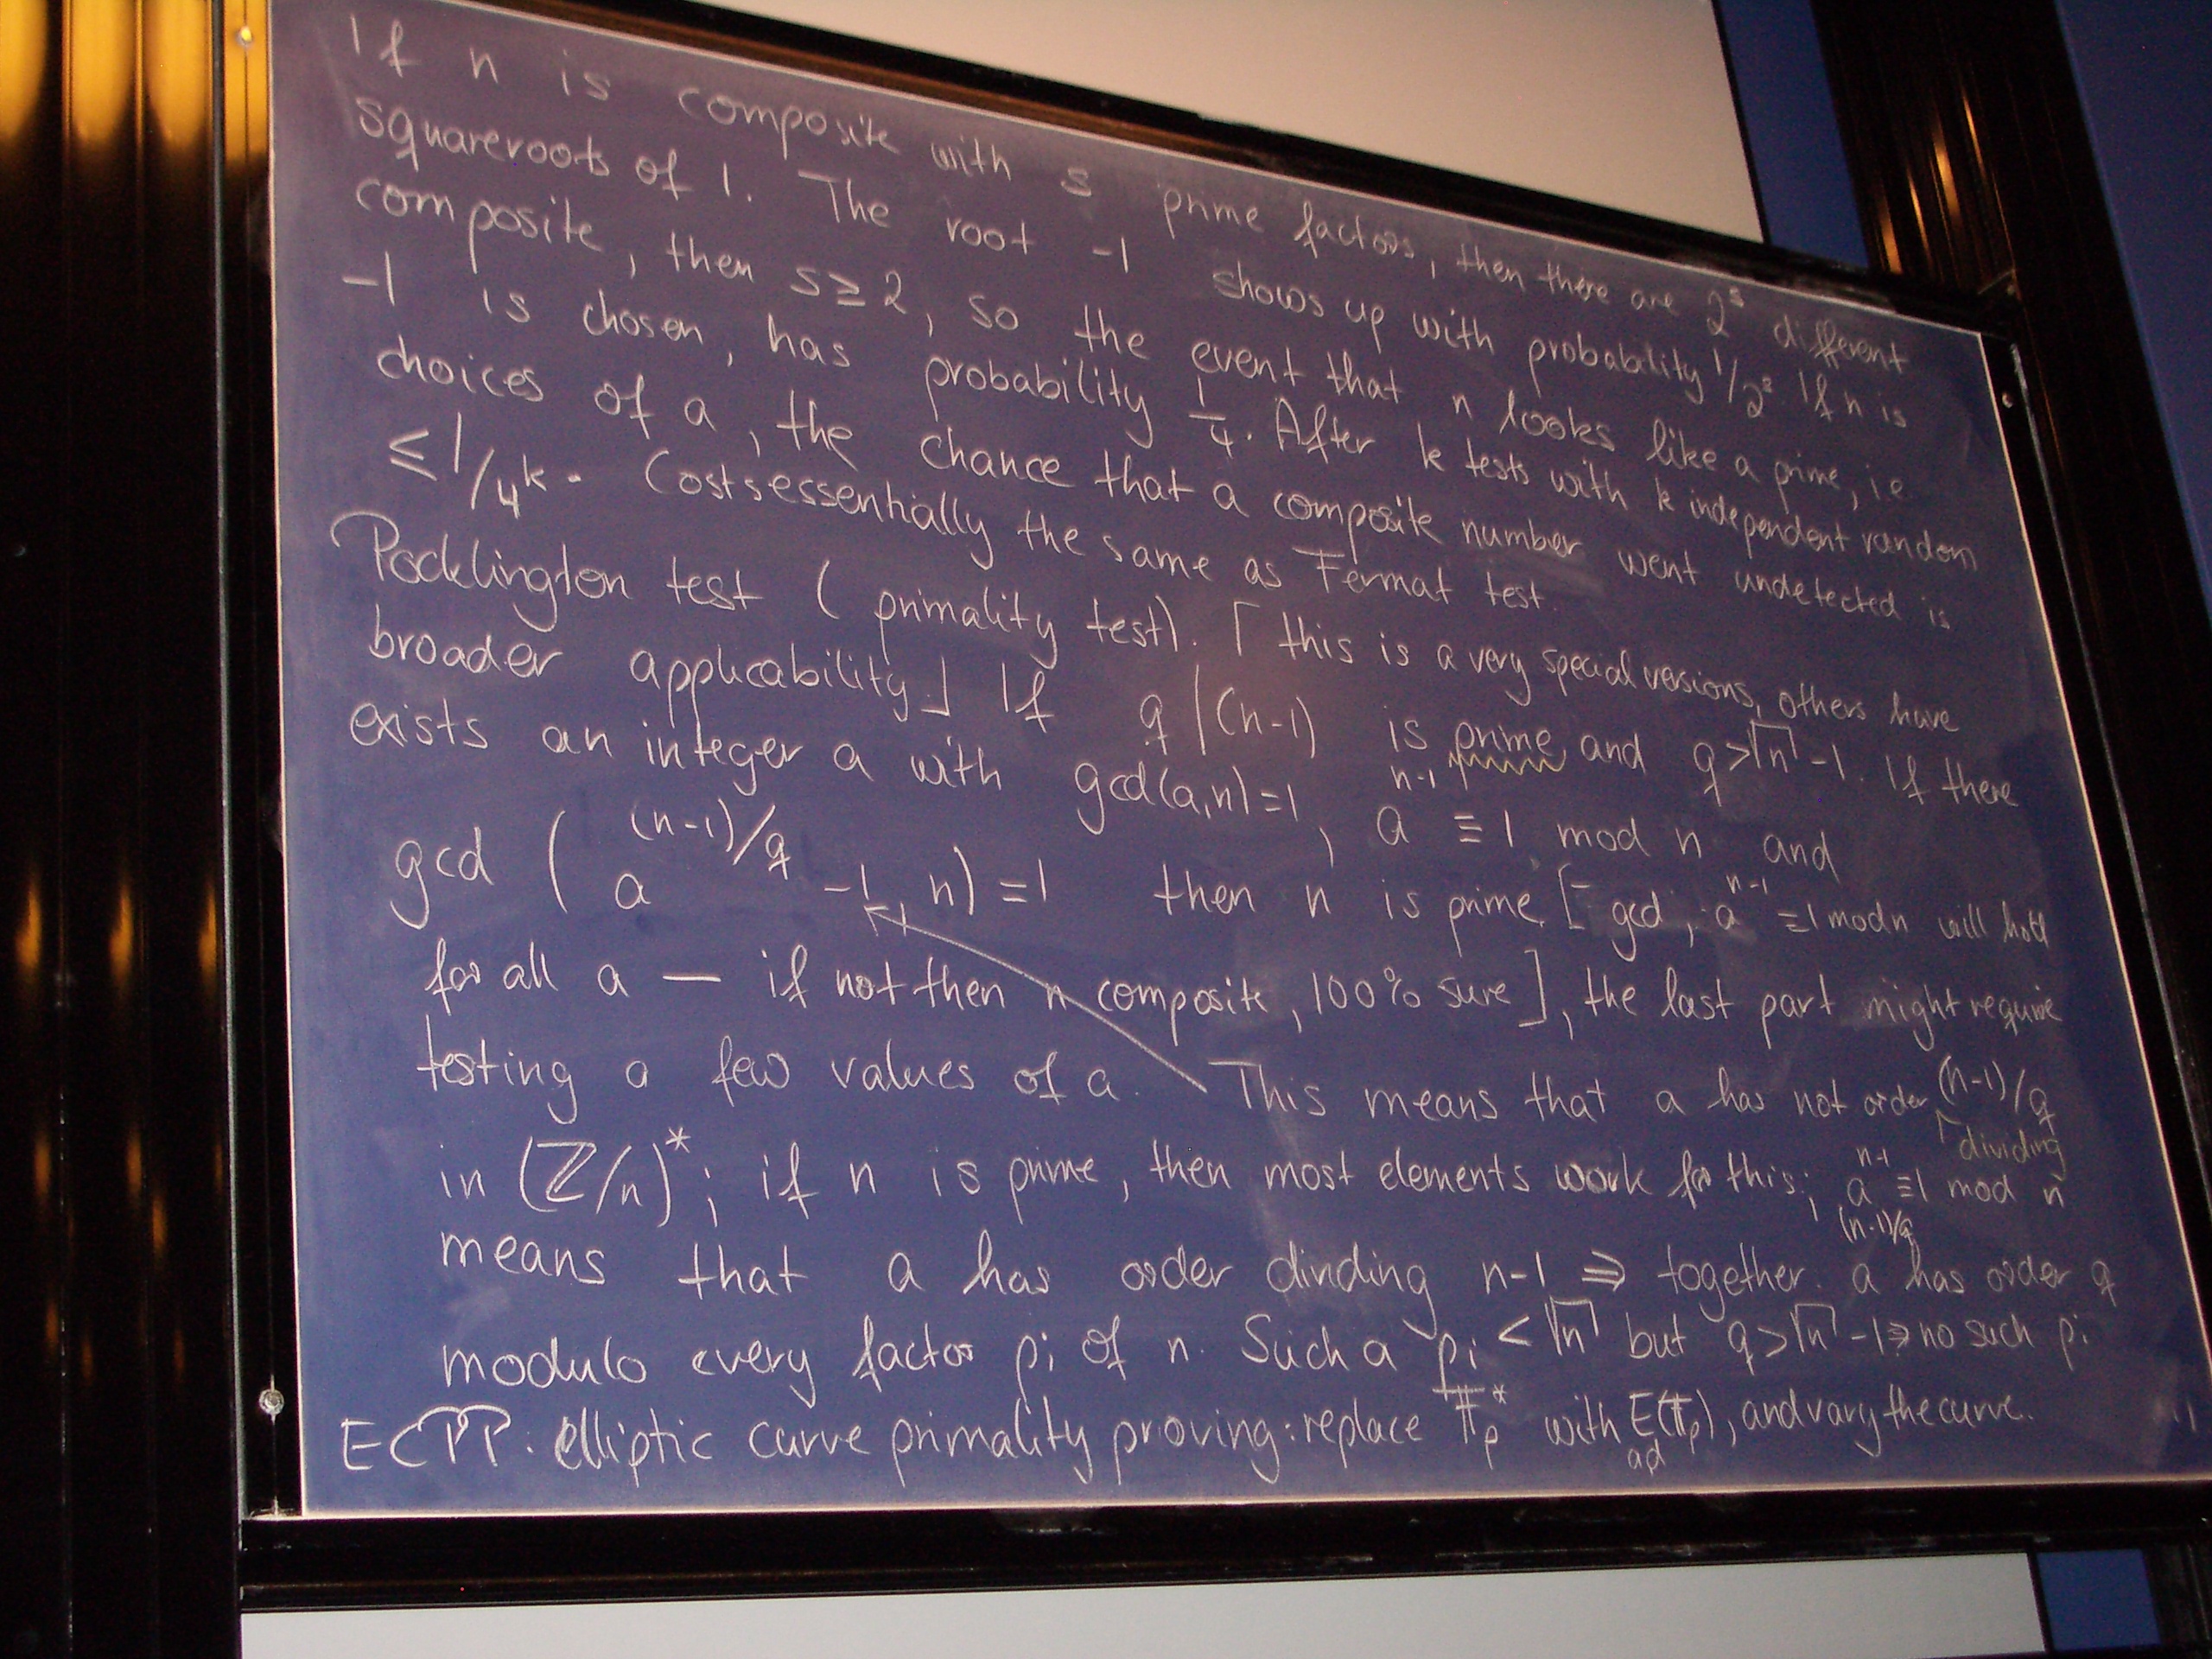 If n is composite with s prime factors, then there are 2^s different
squareroots of 1. The root -1 shows up with probability 1/2^s. If n is
composite, then s≥2, so the event that n looks like a prime, i.e.
-1 is chosen, has probability 1/4. After k tests with k independent random
choices of a, the chance that a composite number went undetected is
≤1/4^k. Costs essentially the same as Fermat test.
Pocklington test (primality test). ⌈this is a very special versions, others have
broader applicability⌋ If q|(n-1) is prime and q>√n-1. If there
exists an integer a with gcd(a,n)=1, a^(n-1) ≡1 mod n and
gcd (a^((n-1)/q) -1, n)=1 then n is prime. [gcd, a^(n-1) ≡1 mod n will hold
for all a — if not then n composite, 100% sure], the last part might require
testing a few values of a. This means that a has not order dividing (n-1)/q
in (ℤ/n)*; if n is prime, then most elements work for this; a^(n-1) ≡1 mod n
means that a has order dividing n-1 ⇒ together a^((n-1)/q) has order q
modulo every factor pi of n. Such a pi <√n but q>√n-1⇒no such pi
ECPP: elliptic curve primality proving: replace 𝔽p* with E_ad(𝔽p), and vary the curve.